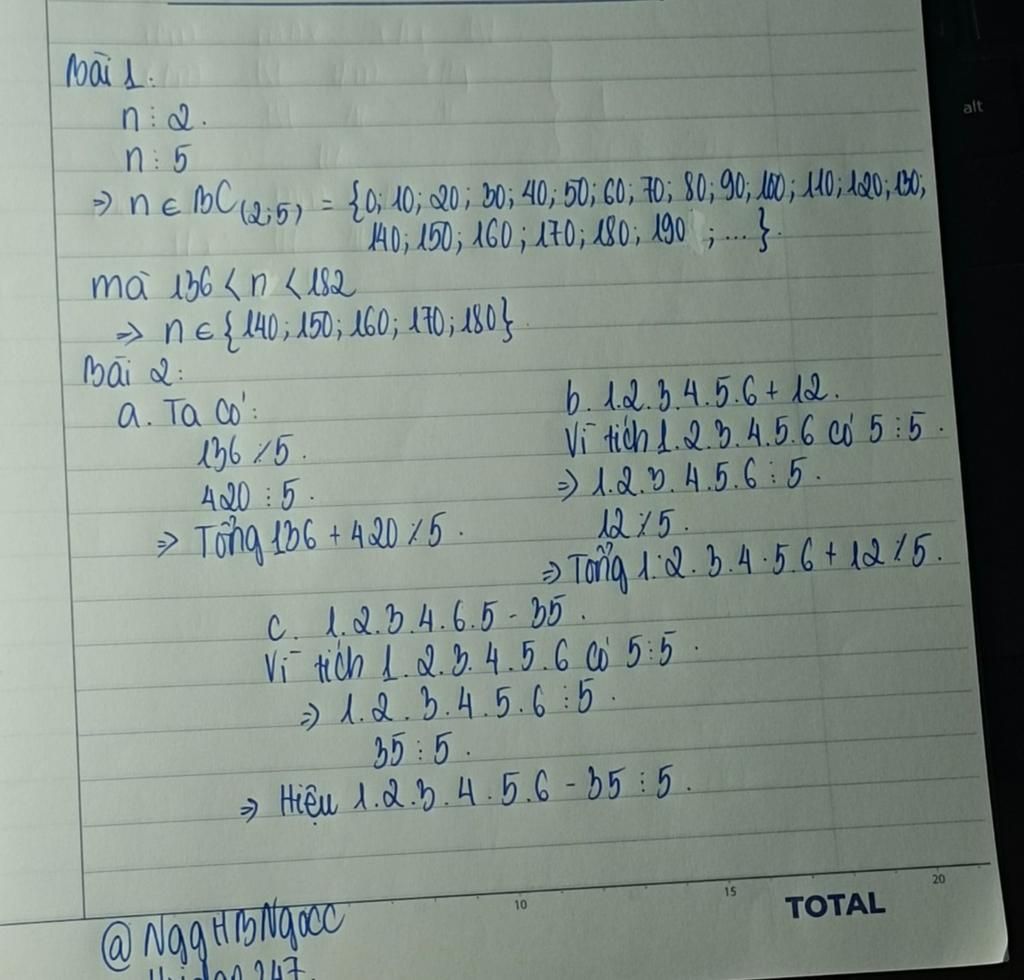 Bài 1:
n ⋮ 2.
n ⋮ 5
⇒ n ∈ BC(2;5) = {0; 10; 20; 30; 40; 50; 60; 70; 80; 90; 100; 110; 120; 130;
140; 150; 160; 170; 180; 190; ...}.
mà 136 < n < 182
⇒ n ∈ {140; 150; 160; 170; 180}
Bài 2:
a. Ta có:
136 ⋮̸ 5.
420 ⋮ 5.
⇒ Tổng 136 + 420 ⋮̸ 5.
b. 1.2.3.4.5.6 + 12.
Vì tích 1.2.3.4.5.6 có 5 ⋮ 5.
⇒ 1.2.3.4.5.6 ⋮ 5.
12 ⋮̸ 5.
⇒ Tổng 1.2.3.4.5.6 + 12 ⋮̸ 5.
c. 1.2.3.4.6.5 - 35.
Vì tích 1.2.3.4.5.6 có 5 ⋮ 5.
⇒ 1.2.3.4.5.6 ⋮ 5.
35 ⋮ 5.
⇒ Hiệu 1.2.3.4.5.6 - 35 ⋮ 5.
10 15 20
TOTAL
@NggHBNgocc
247.
alt